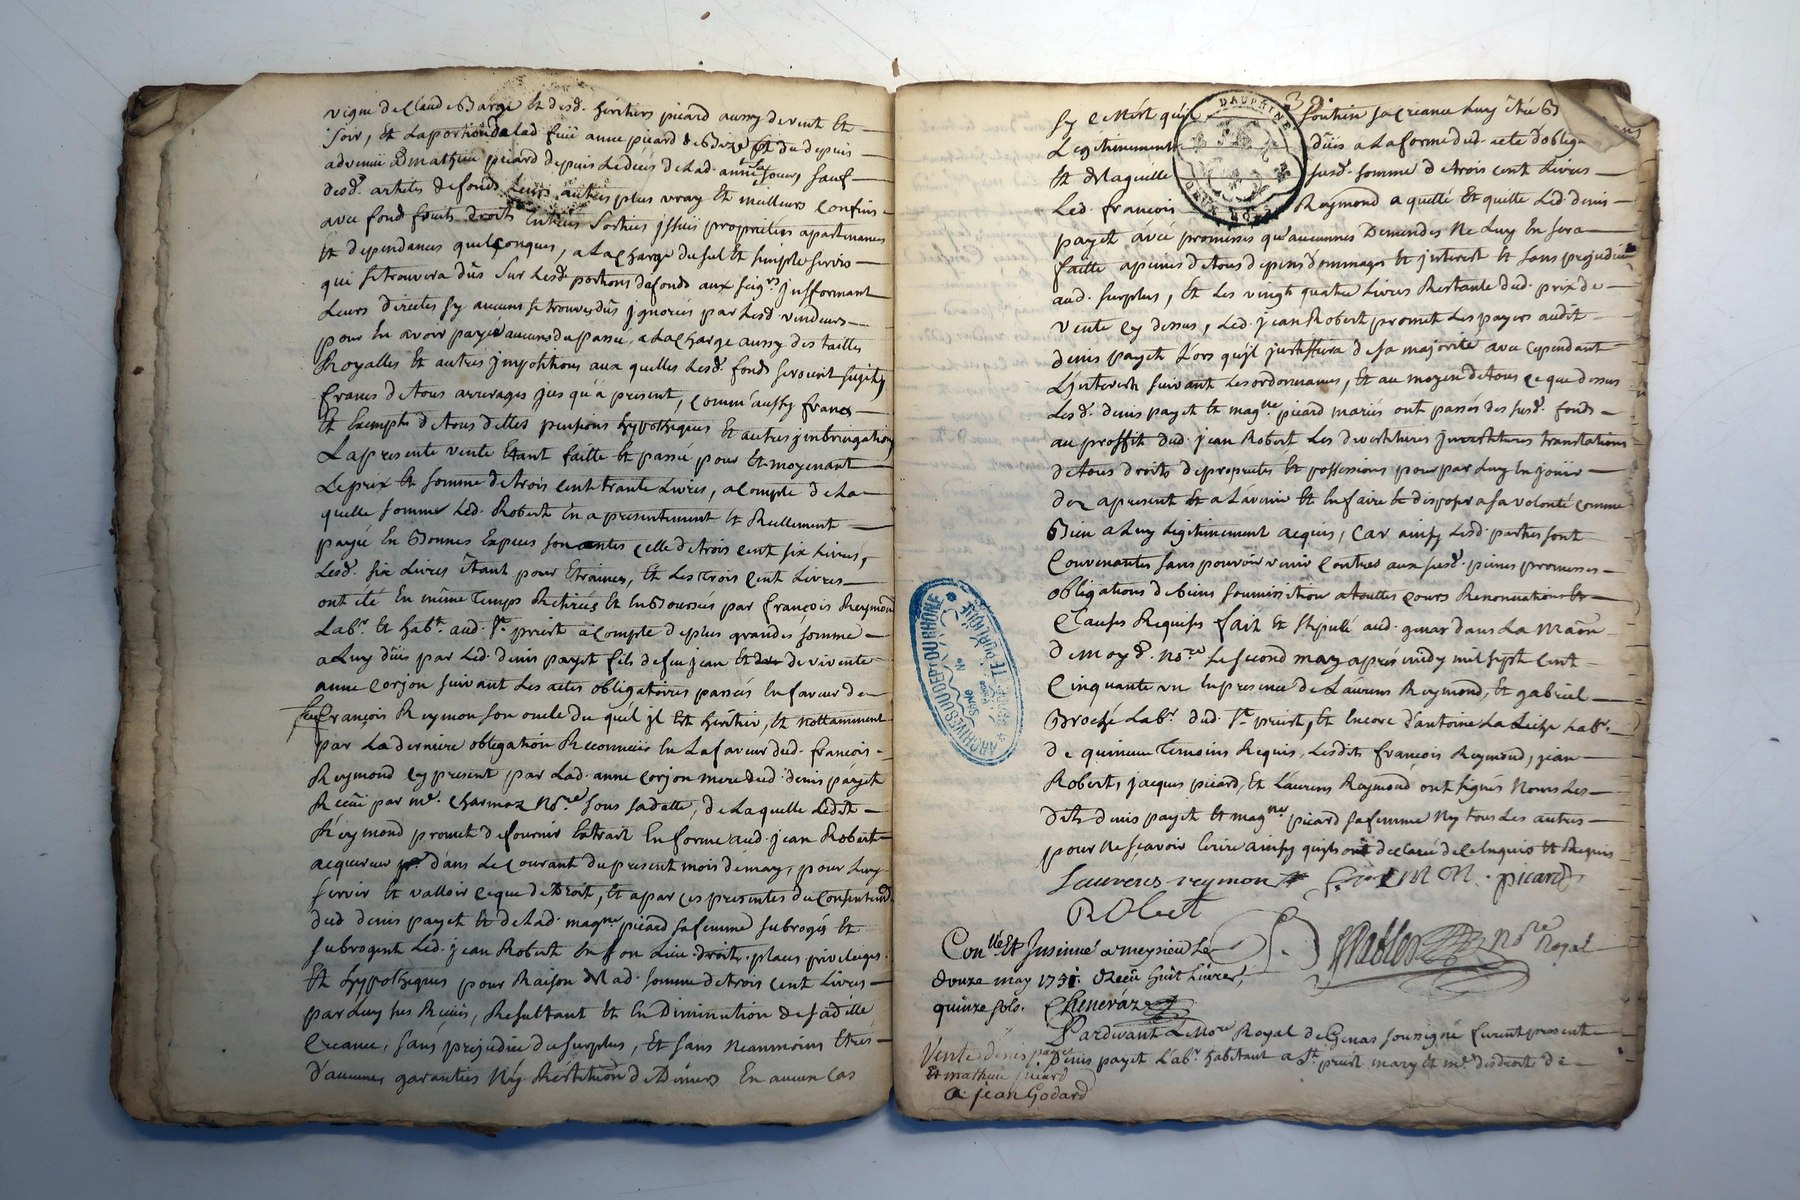 vigne de Claude Barge et desd. héritiers picard aussy devent et
soir, et la portion de lad. feüe anne picard du depuis
advenüe a mathieu picard depuis le déces de lad. anne sauf
desd. artiës de fonds leurs autres plus vray et meilleurs confins
avec fond fruits droits entrées sorties issuës proprietés apartenances
et dependances quelconques, a la charge du sel et simple servis
qui se trouvera dûs sur lesd. portions de fonds aux seigrs
leurs directes sy aucuns se trouve dûs ignorés par lesd. vendeurs
pour en avoir payé aucuns du passé, a la charge aussy des tailles
Royalles et autres impositions aux quelles lesd. fonds seroient sujets
francs de tous arrerages jusqu'a present, comm'aussy francs
et exempts de tous dettes pensions hypotheques et autres
La presente vente êtant faitte et passé pour et moyenant
le prix et somme de trois cent trante livres, a compte de la
quelle somme led. Robert en a presentement et reellement
payé en bonnes especes sonantes celle de trois cent six livres,
lesd. six livres êtant pour étraines, et les trois cent livres
ont été en même temps retirées et emboursés par françois Reymond
labr. et habt. aud. st. priest a compte de plus grandes somme
a luy düis par led. denis payet fils de feu jean et de vivente
anne corjon suivant les actes obligatoires passées en faveur de
feu françois Reymon son oncle du quél il est héritier, et nottamment
par la derniere obligation reconnüis en la faveur dud. françois
Reymond cy present par lad. anne corjon mere dud. denis payet
reçüe par me. Charmaz nore. sous sa datte, de laquelle ledit
Reymond promet de fournir extrait en forme aud. jean Robert
acquereur dans le courant du present mois de may, pour luy
servir et valloir ce que de droit, et a par ces presentes du consentemt
dud. denis payet et de lad. magne. picard sa femme subrogés et
subrogent led. jean Robert en son lieu droits places privileges
et hypotheques pour raison de lad. somme de trois cent livres
par luy reçüis, resultant et en diminution de sa ditte
creance, sans prejudice du surplus, et sans neanmoins êtres
d'aucunes garanties ny restitution de deniers en aucun cas
39.
sy ce n'ést qu'il soutien sa creance luy êtré
légitimement düis a la forme dud. acte d'obliga
et de laquelle susd. somme de trois cent livres
led. françois Reymond a quitté et quitte led. denis
payet avec promesses qu'aucunnes demendes ne luy en sera
faitte a peines de tous depens dommages et interest et sans prejudice
aud. surplus, et les vingt quatre livres restante dud. prix de
vente cy dessus, led. jean Robert promet les payer audit
denis payet l'ors qu'jl justiffira de sa majorité avec cependant
l'interest suivant les ordonnances, et au moyen de tous ce que dessus
lesd. denis payet et magne. picard mariés ont passés des susd. fonds
au proffit dud. jean Robert les devestitures investitures translations
de tous droits de proprietés et possessions pour par luy en joüir
dez apresent et a l'avenir et en faire et disposer a sa volonté comme
Bien a luy légitimement acquis, car ainsy lesd. parties sont
convenantes sans pouvoir venir contres aux susd. peines promesses
obligations de biens soumission a touttes cours renonciation et
clauses requises fait et stipulé aud. genas dans la maison
de moy d. nore. le second may aprés midy mil sept cent
cinquante un en presence de Laurens Reymond, et gabriel
Broché labr. dud. st. priest, et encore d'antoine
de temoins requis, lesdits françois Reymond, jean
Robert, jacques picard, et Laurens Reymond ont signés nonts les
dits denis payet et magne. picard sa femme ny tous les autres
pour ne sçavoir écrire ainsy qu'ils ont declaré de ce enquis et requis
Laurens reymon picard
Robert
Conlle et Insinué a meysieu le nore Royal
douze may 1751. Receu huit livres,
quinze sols. Chenerάz
Pardevant le nore. Royal de Genas sousigné furent presents
Vente denis payet
denis payet l'abr. habitant a st. priest mary et me. des droits de
et mathieu picard
a jean Godard
DAUPHINÉ
ARCHIVES DU DEP.T DU RHONE